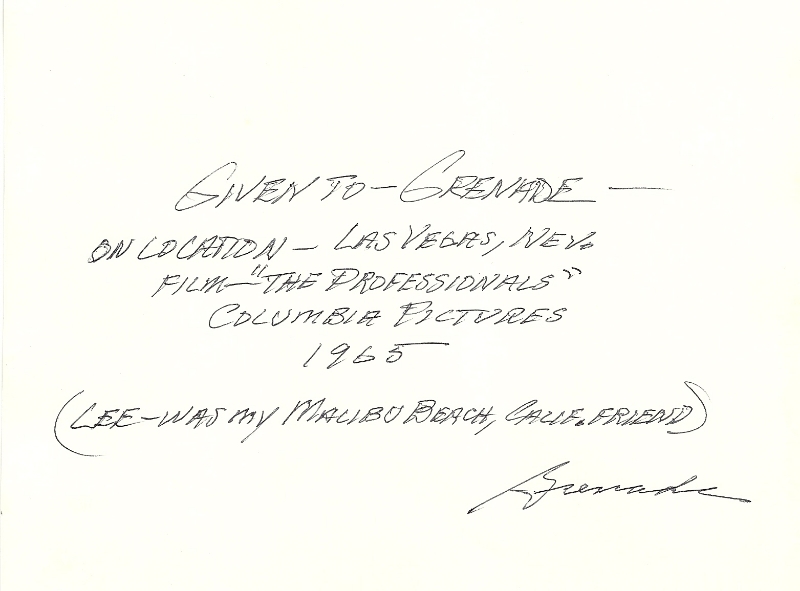 GIVEN TO – GRENADE —
ON LOCATION – LAS VEGAS, NEV.
FILM – "THE PROFESSIONALS"
COLUMBIA PICTURES
1965
(LEE – WAS MY MALIBU BEACH, CALIF. FRIEND)
Grenade